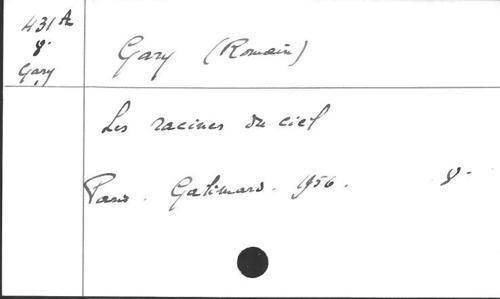 431 A
8.
Gary
Gary (Romain)
Les racines du ciel
Paris. Gallimard. 1956. 8.